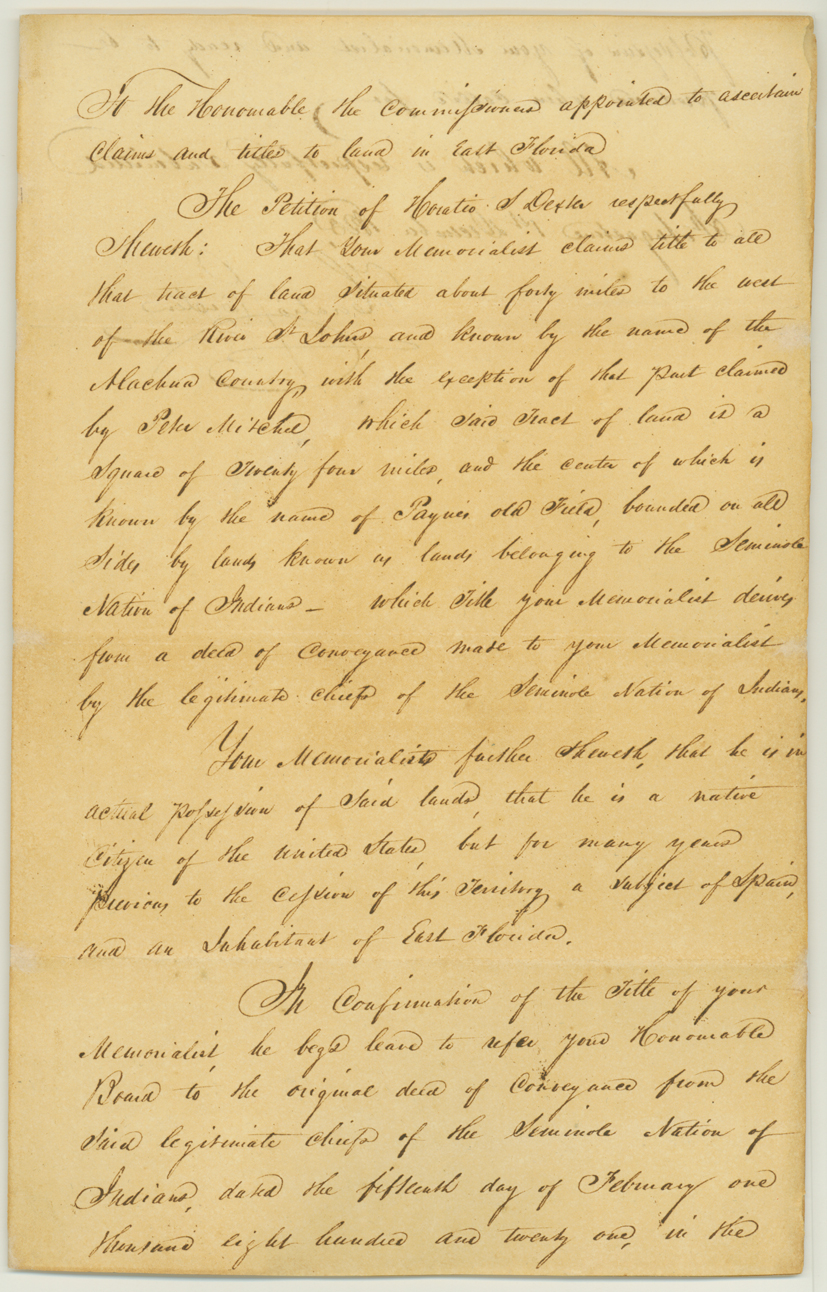 To the Honourable, the Commissioners appointed to ascertain
Claims and titles to land in East Florida
The Petition of Horatio S Dexter respectfully
Sheweth: That Your Memorialist claims title to all
that tract of land situated about forty miles to the west
of the River St Johns, and known by the name of the
Alachua Country, with the exception of that part claimed
by Peter Mitchel, which said Tract of land is a
square of Twenty four miles, and the center of which is
known by the name of Paynes old Field, bounded on all
Sides by lands known as lands belonging to the Seminole
Nation of Indians — which Title your Memorialist derives
from a deed of Conveyance made to your Memorialist
by the legitimate chiefs of the Seminole Nation of Indians,
Your Memorialists further sheweth, that he is in
actual possession of said lands, that he is a native
Citizen of the United States, but for many years
previous to the Cession of this Territory a subject of Spain,
and an Inhabitant of East Florida.
In Confirmation of the Title of your
Memorialist, he begs leave to refer your Honourable
Board to the original deed of Conveyance from the
said legitimate Chiefs of the Seminole Nation of
Indians, dated the fifteenth day of February one
thousand eight hundred and twenty one, in the